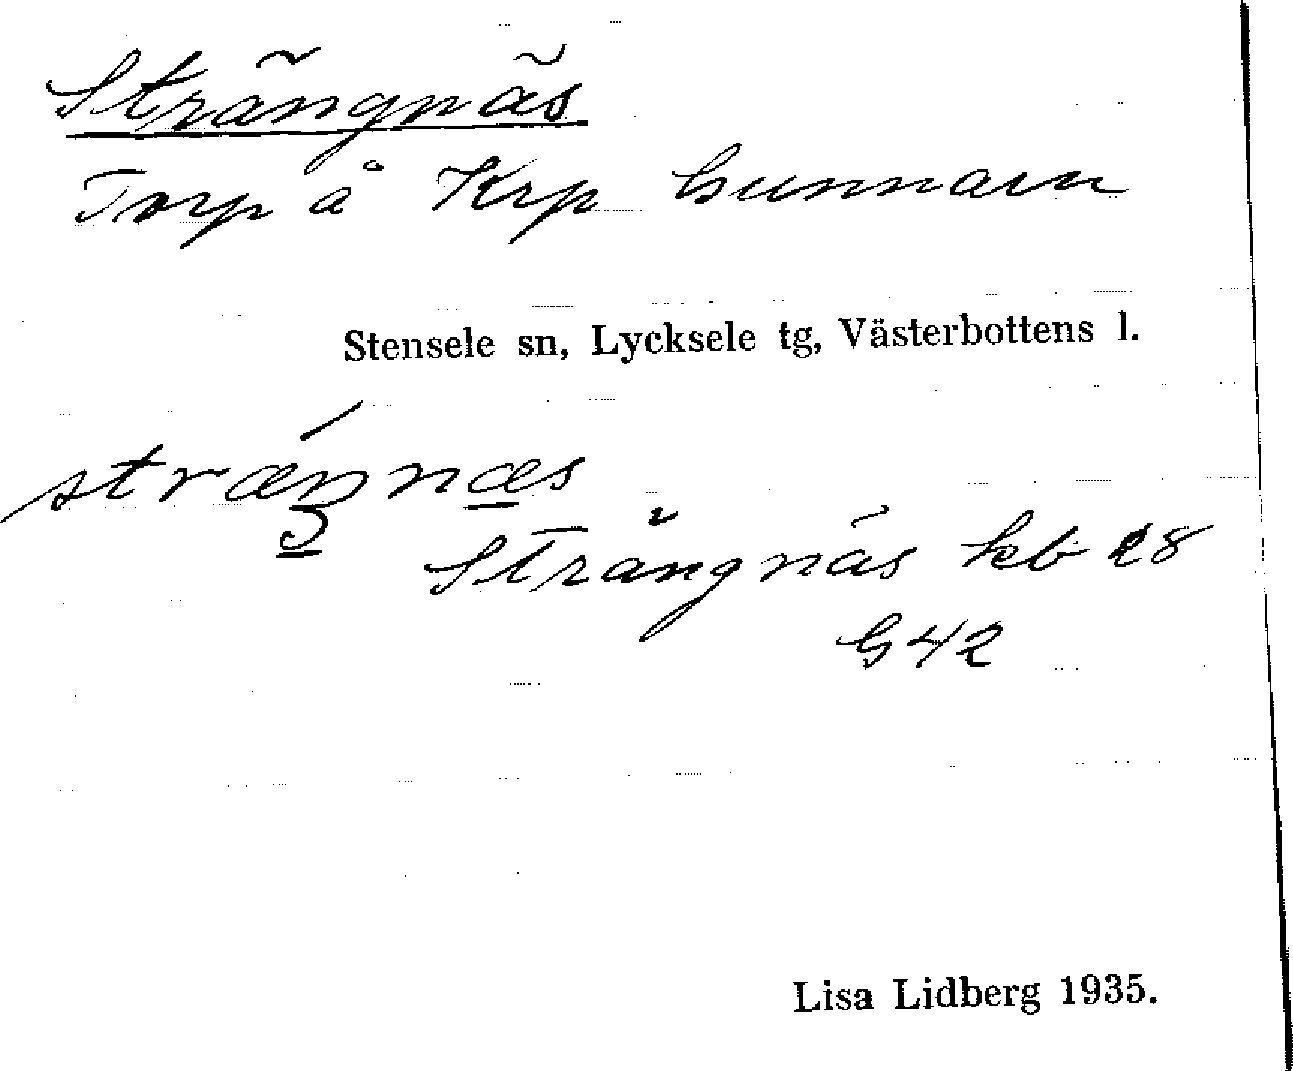 Strängnäs
Torp å Krp Gunnarn
Stensele sn, Lycksele tg, Västerbottens l.
stræŋnæs
Strängnäs kb 28
G42
Lisa Lidberg 1935.